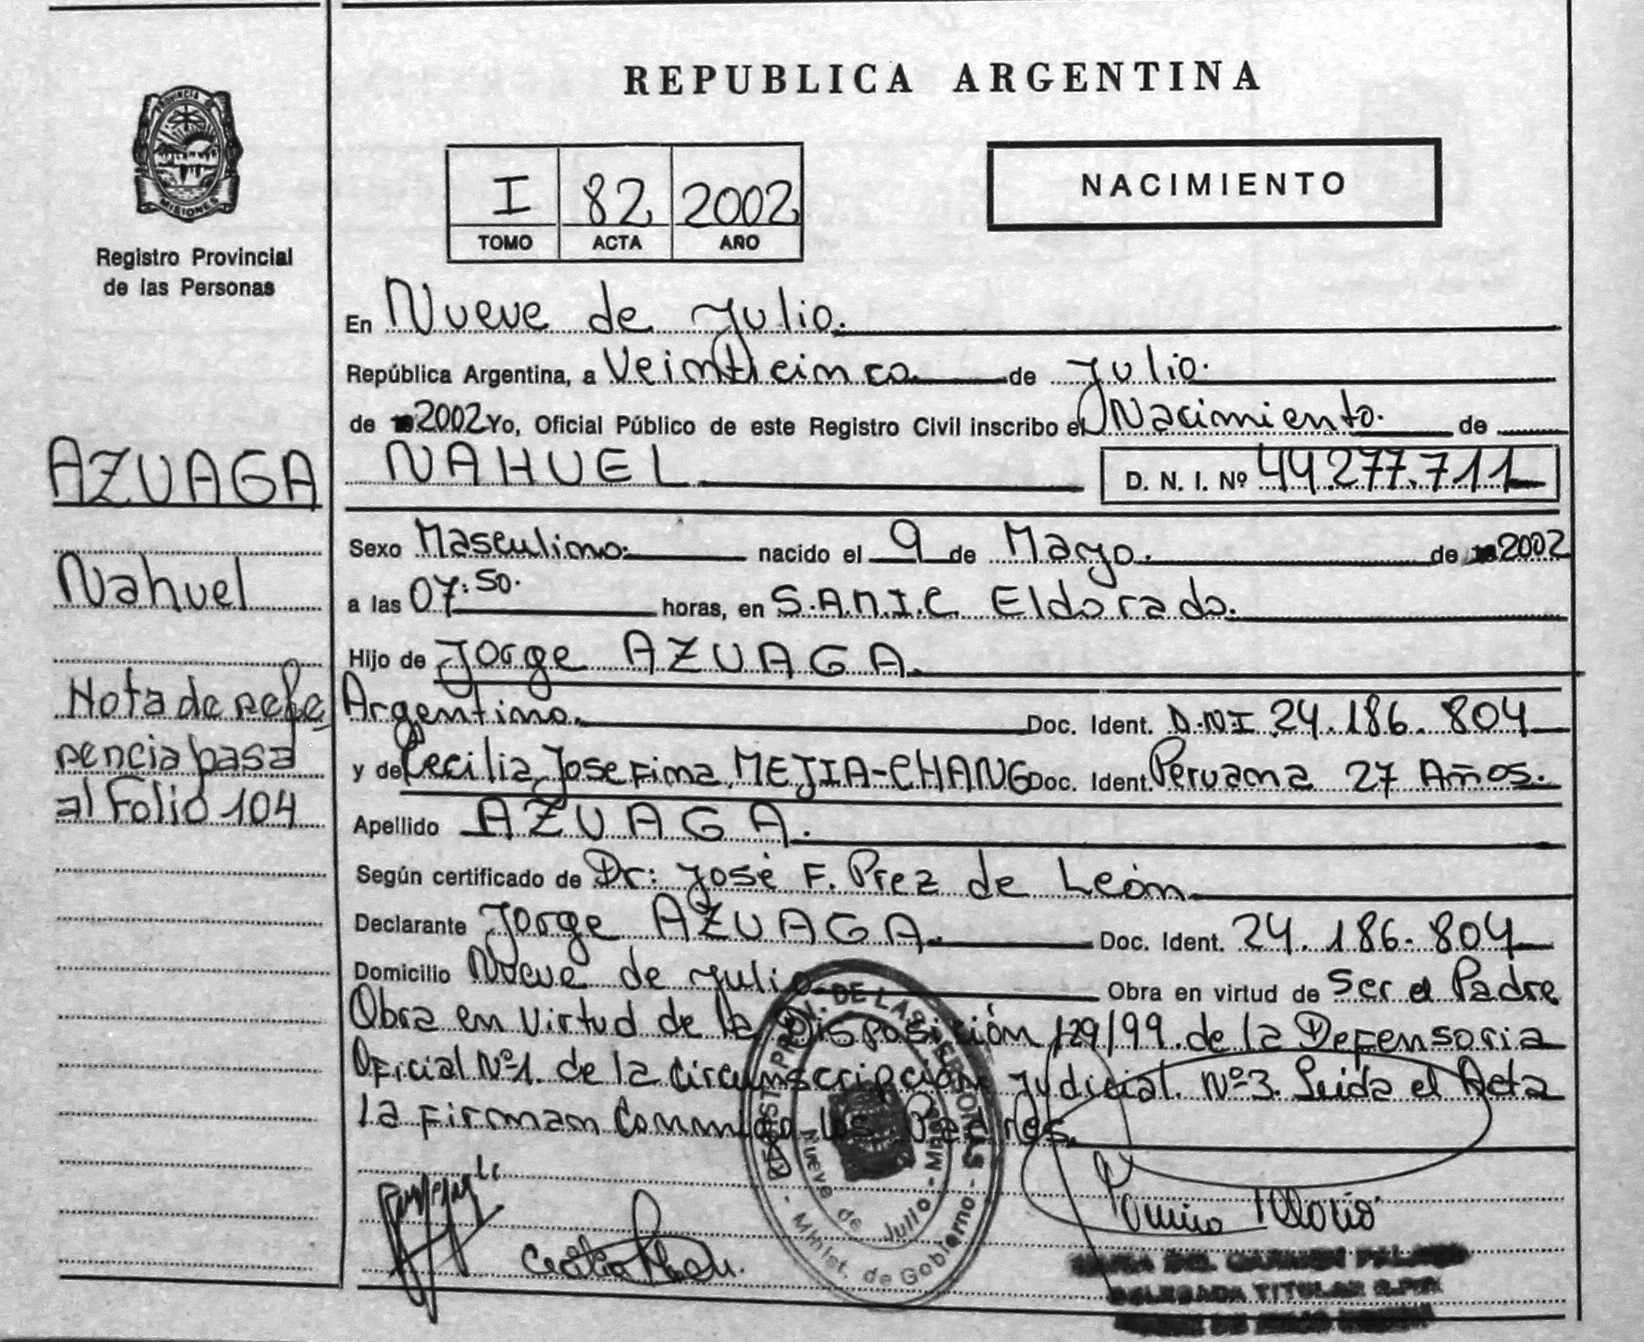 REPUBLICA ARGENTINA
PROVINCIA
MISIONES
Registro Provincial
de las Personas
I 82 2002
TOMO ACTA AÑO
NACIMIENTO
En Nueve de Julio.
República Argentina, a Veinticinco de Julio.
de 2002 Yo, Oficial Público de este Registro Civil inscribo el Nacimiento. de
NAHUEL D. N. I. Nº 44.277.711
Sexo Masculino. nacido el 9 de Mayo. de 2002
a las 07:50. horas, en S.A.M.I.C. Eldorado.
Hijo de Jorge AZUAGA.
Argentino. Doc. Ident. D.N.I 24.186.804
y de Cecilia Josefina MEJIA-CHANG Doc. Ident. Peruana 27 Años.
Apellido AZUAGA.
Según certificado de Dr: José F. Prez de León
Declarante Jorge AZUAGA. Doc. Ident. 24.186.804
Domicilio Nueve de Julio Obra en virtud de ser el Padre
Obra en Virtud de la Disposición 129/99 de la Defensoria
Oficial Nº1. de la Circunscripción Judicial. Nº3. Leida el Acta
la Firman Conmigo los Padres.
AZUAGA
Nahuel
Nota de refe
rencia pasa
al Folio 104
DE LAS PERSONAS
Nueve de Julio - Mnes
Minist. de Gobierno
MARIA DEL CARMEN
DELEGADA TITULAR R.P.P.